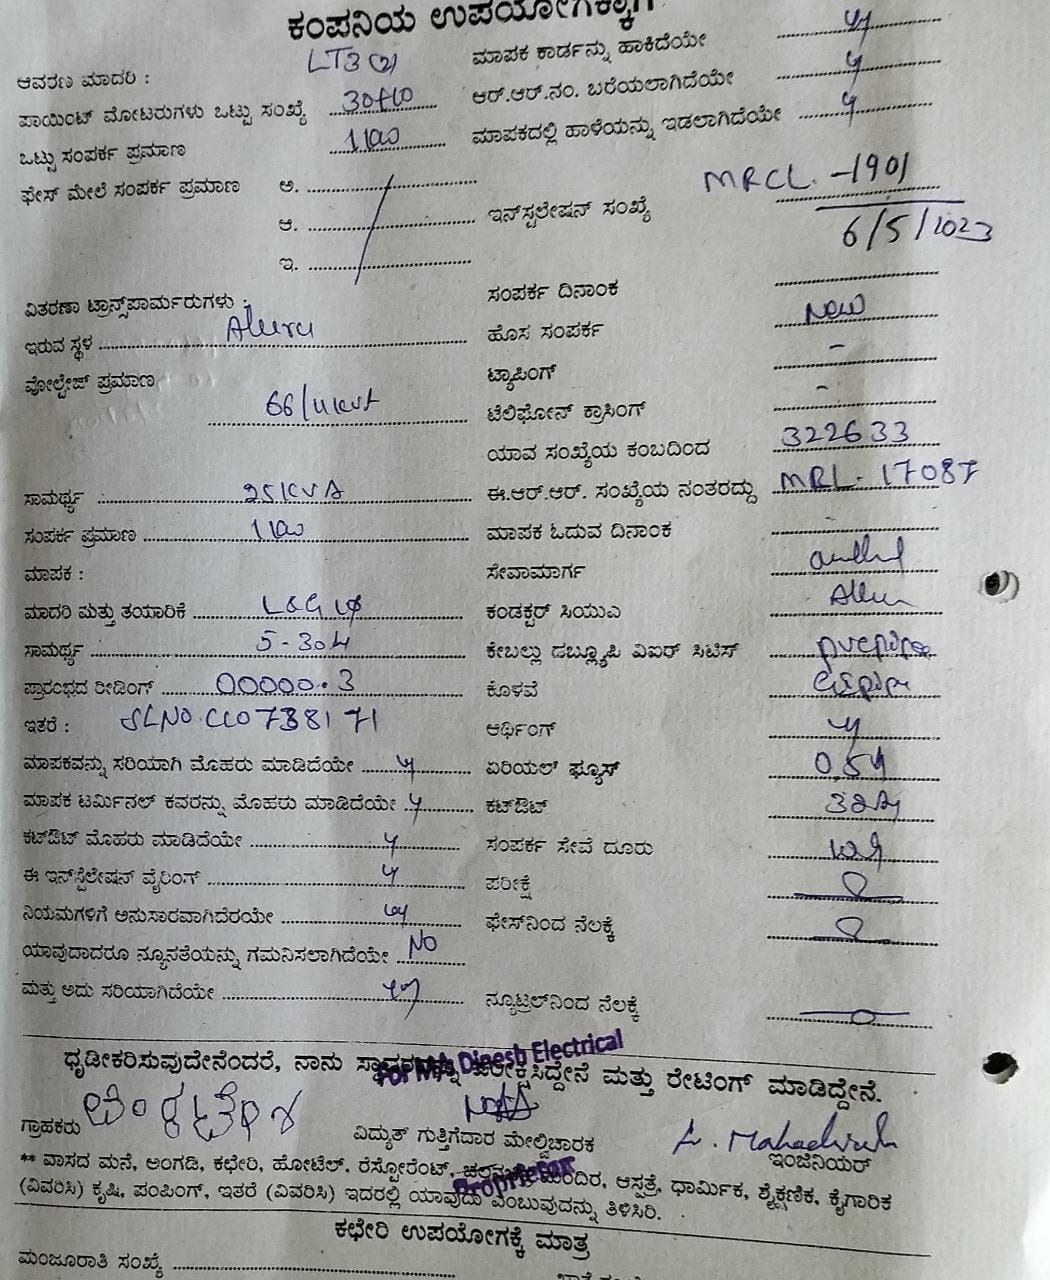 ಕಂಪನಿಯ ಉಪಯೋಗಕ್ಕಾಗಿ
ಆವರಣ ಮಾದರಿ : LT3 (2)
ಮಾಪಕ ಕಾರ್ಡನ್ನು ಹಾಕಿದೆಯೇ
ಪಾಯಿಂಟ್ ಮೋಟರುಗಳು ಒಟ್ಟು ಸಂಖ್ಯೆ
ಆರ್.ಆರ್.ನಂ. ಬರೆಯಲಾಗಿದೆಯೇ
ಒಟ್ಟು ಸಂಪರ್ಕ ಪ್ರಮಾಣ
ಮಾಪಕದಲ್ಲಿ ಹಾಳೆಯನ್ನು ಇಡಲಾಗಿದೆಯೇ
ಫೇಸ್ ಮೇಲೆ ಸಂಪರ್ಕ ಪ್ರಮಾಣ ಅ.
ಆ.
ಇ.
ಇನ್‌ಸ್ಟಲೇಷನ್ ಸಂಖ್ಯೆ MRCL - 1901
6/5/2023
ವಿತರಣಾ ಟ್ರಾನ್ಸ್‌ಪಾರ್ಮರುಗಳು :
ಸಂಪರ್ಕ ದಿನಾಂಕ
ಇರುವ ಸ್ಥಳ Aluru
ಹೊಸ ಸಂಪರ್ಕ New
ವೋಲ್ಟೇಜ್ ಪ್ರಮಾಣ
ಟ್ಯಾಪಿಂಗ್ -
66/11kv
ಟೆಲಿಫೋನ್ ಕ್ರಾಸಿಂಗ್ -
ಯಾವ ಸಂಖ್ಯೆಯ ಕಂಬದಿಂದ 322633
ಸಾಮರ್ಥ್ಯ : 25KVA
ಈ.ಆರ್.ಆರ್. ಸಂಖ್ಯೆಯ ನಂತರದ್ದು MRL - 17087
ಸಂಪರ್ಕ ಪ್ರಮಾಣ
ಮಾಪಕ ಓದುವ ದಿನಾಂಕ
ಮಾಪಕ :
ಸೇವಾಮಾರ್ಗ
ಮಾದರಿ ಮತ್ತು ತಯಾರಿಕೆ L&G 1φ
ಕಂಡಕ್ಟರ್ ಸಿಯುಎ
ಸಾಮರ್ಥ್ಯ 5-30A
ಕೇಬಲ್ಲು ಡಬ್ಲ್ಯೂಪಿ ವಿಐರ್ ಸಿಟಿಸ್
ಪ್ರಾರಂಭದ ರೀಡಿಂಗ್ 00000.3
ಕೊಳವೆ
ಇತರೆ : SLNO. CC0738171
ಆರ್ಥಿಂಗ್ y
ಮಾಪಕವನ್ನು ಸರಿಯಾಗಿ ಮೊಹರು ಮಾಡಿದೆಯೇ y
ಏರಿಯಲ್ ಫ್ಯೂಸ್
ಮಾಪಕ ಟರ್ಮಿನಲ್ ಕವರನ್ನು ಮೊಹರು ಮಾಡಿದೆಯೇ y
ಕಟ್‌ಔಟ್
ಕಟ್‌ಔಟ್ ಮೊಹರು ಮಾಡಿದೆಯೇ y
ಸಂಪರ್ಕ ಸೇವೆ ದೂರು
ಈ ಇನ್‌ಸ್ಟೆಲೇಷನ್ ವೈರಿಂಗ್ y
ಪರೀಕ್ಷೆ
ನಿಯಮಗಳಿಗೆ ಅನುಸಾರವಾಗಿದೆರಯೇ
ಫೇಸ್‌ನಿಂದ ನೆಲಕ್ಕೆ
ಯಾವುದಾದರೂ ನ್ಯೂನತೆಯನ್ನು ಗಮನಿಸಲಾಗಿದೆಯೇ NO
ಮತ್ತು ಅದು ಸರಿಯಾಗಿದೆಯೇ
ನ್ಯೂಟ್ರಲ್‌ನಿಂದ ನೆಲಕ್ಕೆ
For M/s Dinesh Electrical
ಧೃಡೀಕರಿಸುವುದೇನೆಂದರೆ, ನಾನು ಪರೀಕ್ಷಿಸಿದ್ದೇನೆ ಮತ್ತು ರೇಟಿಂಗ್ ಮಾಡಿದ್ದೇನೆ.
ಗ್ರಾಹಕರು
ವಿದ್ಯುತ್ ಗುತ್ತಿಗೆದಾರ ಮೇಲ್ವಿಚಾರಕ
ಇಂಜಿನಿಯರ್
** ವಾಸದ ಮನೆ, ಅಂಗಡಿ, ಕಛೇರಿ, ಹೋಟೆಲ್, ರೆಸ್ಟೋರೆಂಟ್, ಚಲನಚಿತ್ರ ಮಂದಿರ, ಆಸ್ಪತ್ರೆ, ಧಾರ್ಮಿಕ, ಶೈಕ್ಷಣಿಕ, ಕೈಗಾರಿಕ
Proprietor
(ವಿವರಿಸಿ) ಕೃಷಿ, ಪಂಪಿಂಗ್, ಇತರೆ (ವಿವರಿಸಿ) ಇದರಲ್ಲಿ ಯಾವುದು ಎಂಬುವುದನ್ನು ತಿಳಿಸಿರಿ.
ಕಛೇರಿ ಉಪಯೋಗಕ್ಕೆ ಮಾತ್ರ
ಮಂಜೂರಾತಿ ಸಂಖ್ಯೆ